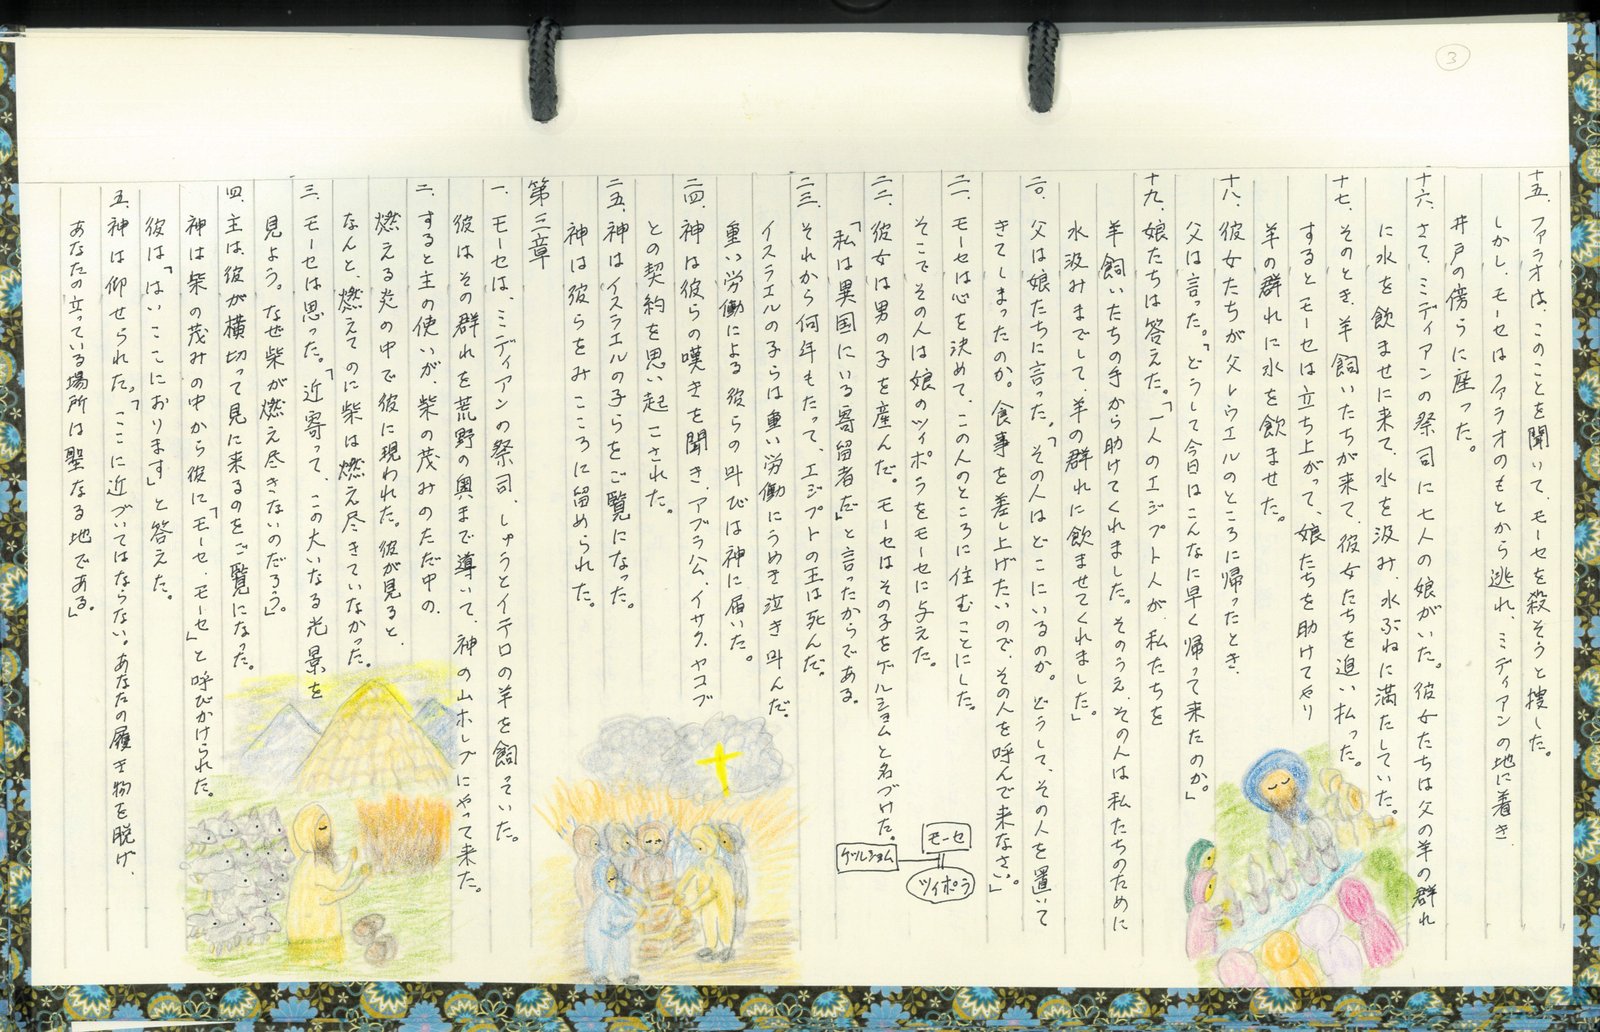 3
十五、ファラオは、このことを聞いて、モーセを殺そうと捜した。
しかし、モーセはファラオのもとから逃れ、ミディアンの地に着き
井戸の傍らに座った。
十六、さて、ミディアンの祭司に七人の娘がいた。彼女たちは父の羊の群れ
に水を飲ませに来て、水を汲み、水ぶねに満たしていた。
十七、そのとき、羊飼いたちが来て、彼女たちを追い払った。
するとモーセは立ち上がって、娘たちを助けてやり
羊の群れに水を飲ませた。
十八、彼女たちが父レウエルのところに帰ったとき、
父は言った。「どうして今日はこんなに早く帰って来たのか。」
十九、娘たちは答えた。「一人のエジプト人が、私たちを
羊飼いたちの手から助けてくれました。そのうえ、その人は私たちのために
水汲みまでして、羊の群れに飲ませてくれました。」
二〇、父は娘たちに言った。「その人はどこにいるのか。どうして、その人を置いて
きてしまったのか。食事を差し上げたいので、その人を呼んで来なさい。」
二一、モーセは心を決めて、この人のところに住むことにした。
そこでその人は娘のツィポラをモーセに与えた。
二二、彼女は男の子を産んだ。モーセはその子をゲルショムと名づけた。
「私は異国にいる寄留者だ」と言ったからである。
モーセ
ゲルショム
ツィポラ
二三、それから何年もたって、エジプトの王は死んだ。
イスラエルの子らは重い労働にうめき泣き叫んだ。
重い労働による彼らの叫びは神に届いた。
二四、神は彼らの嘆きを聞き、アブラハム、イサク、ヤコブ
との契約を思い起こされた。
二五、神はイスラエルの子らをご覧になった。
神は彼らをみこころに留められた。
第三章
一、モーセは、ミディアンの祭司、しゅうとイテロの羊を飼っていた。
彼はその群れを荒野の奥まで導いて、神の山ホレブにやって来た。
二、すると主の使いが、柴の茂みのただ中の、
燃える炎の中で彼に現われた。彼が見ると、
なんと、燃えてのに柴は燃え尽きていなかった。
三、モーセは思った。「近寄って、この大いなる光景を
見よう。なぜ柴が燃え尽きないのだろう。」
四、主は、彼が横切って見に来るのをご覧になった。
神は柴の茂みの中から彼に「モーセ、モーセ」と呼びかけられた。
彼は「はい、ここにおります」と答えた。
五、神は仰せられた。「ここに近づいてはならない。あなたの履き物を脱げ、
あなたの立っている場所は聖なる地である。」